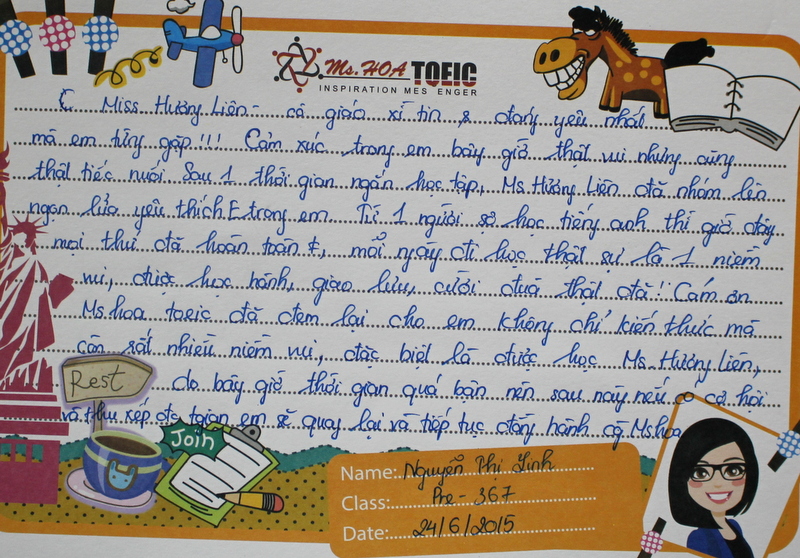 Ms. HOA TOEIC
INSPIRATION MES ENGER
Miss Hương Liên - cô giáo xì tin & đáng yêu nhất
mà em từng gặp!!! Cảm xúc trong em bây giờ thật vui nhưng cũng
thật tiếc nuối. Sau 1 thời gian ngắn học tập, Ms Hương Liên đã nhóm lên
ngọn lửa yêu thích E trong em. Từ 1 người sợ học tiếng anh thì giờ đây
mọi thứ đã hoàn toàn ≠, mỗi ngày đi học thật sự là 1 niềm
vui, được học hành, giao lưu, cười đùa thật đã! Cám ơn
Ms.hoa toeic đã đem lại cho em không chỉ kiến thức mà
còn rất nhiều niềm vui, đặc biệt là được học Ms. Hương Liên,
do bây giờ thời gian quá bận nên sau này nếu có cơ hội
và thu xếp đc tgian em sẽ quay lại và tiếp tục đồng hành cg Mshoa
Rest
Join
Name: Nguyễn Thị Linh
Class: Pre - 367
Date: 24/6/2015